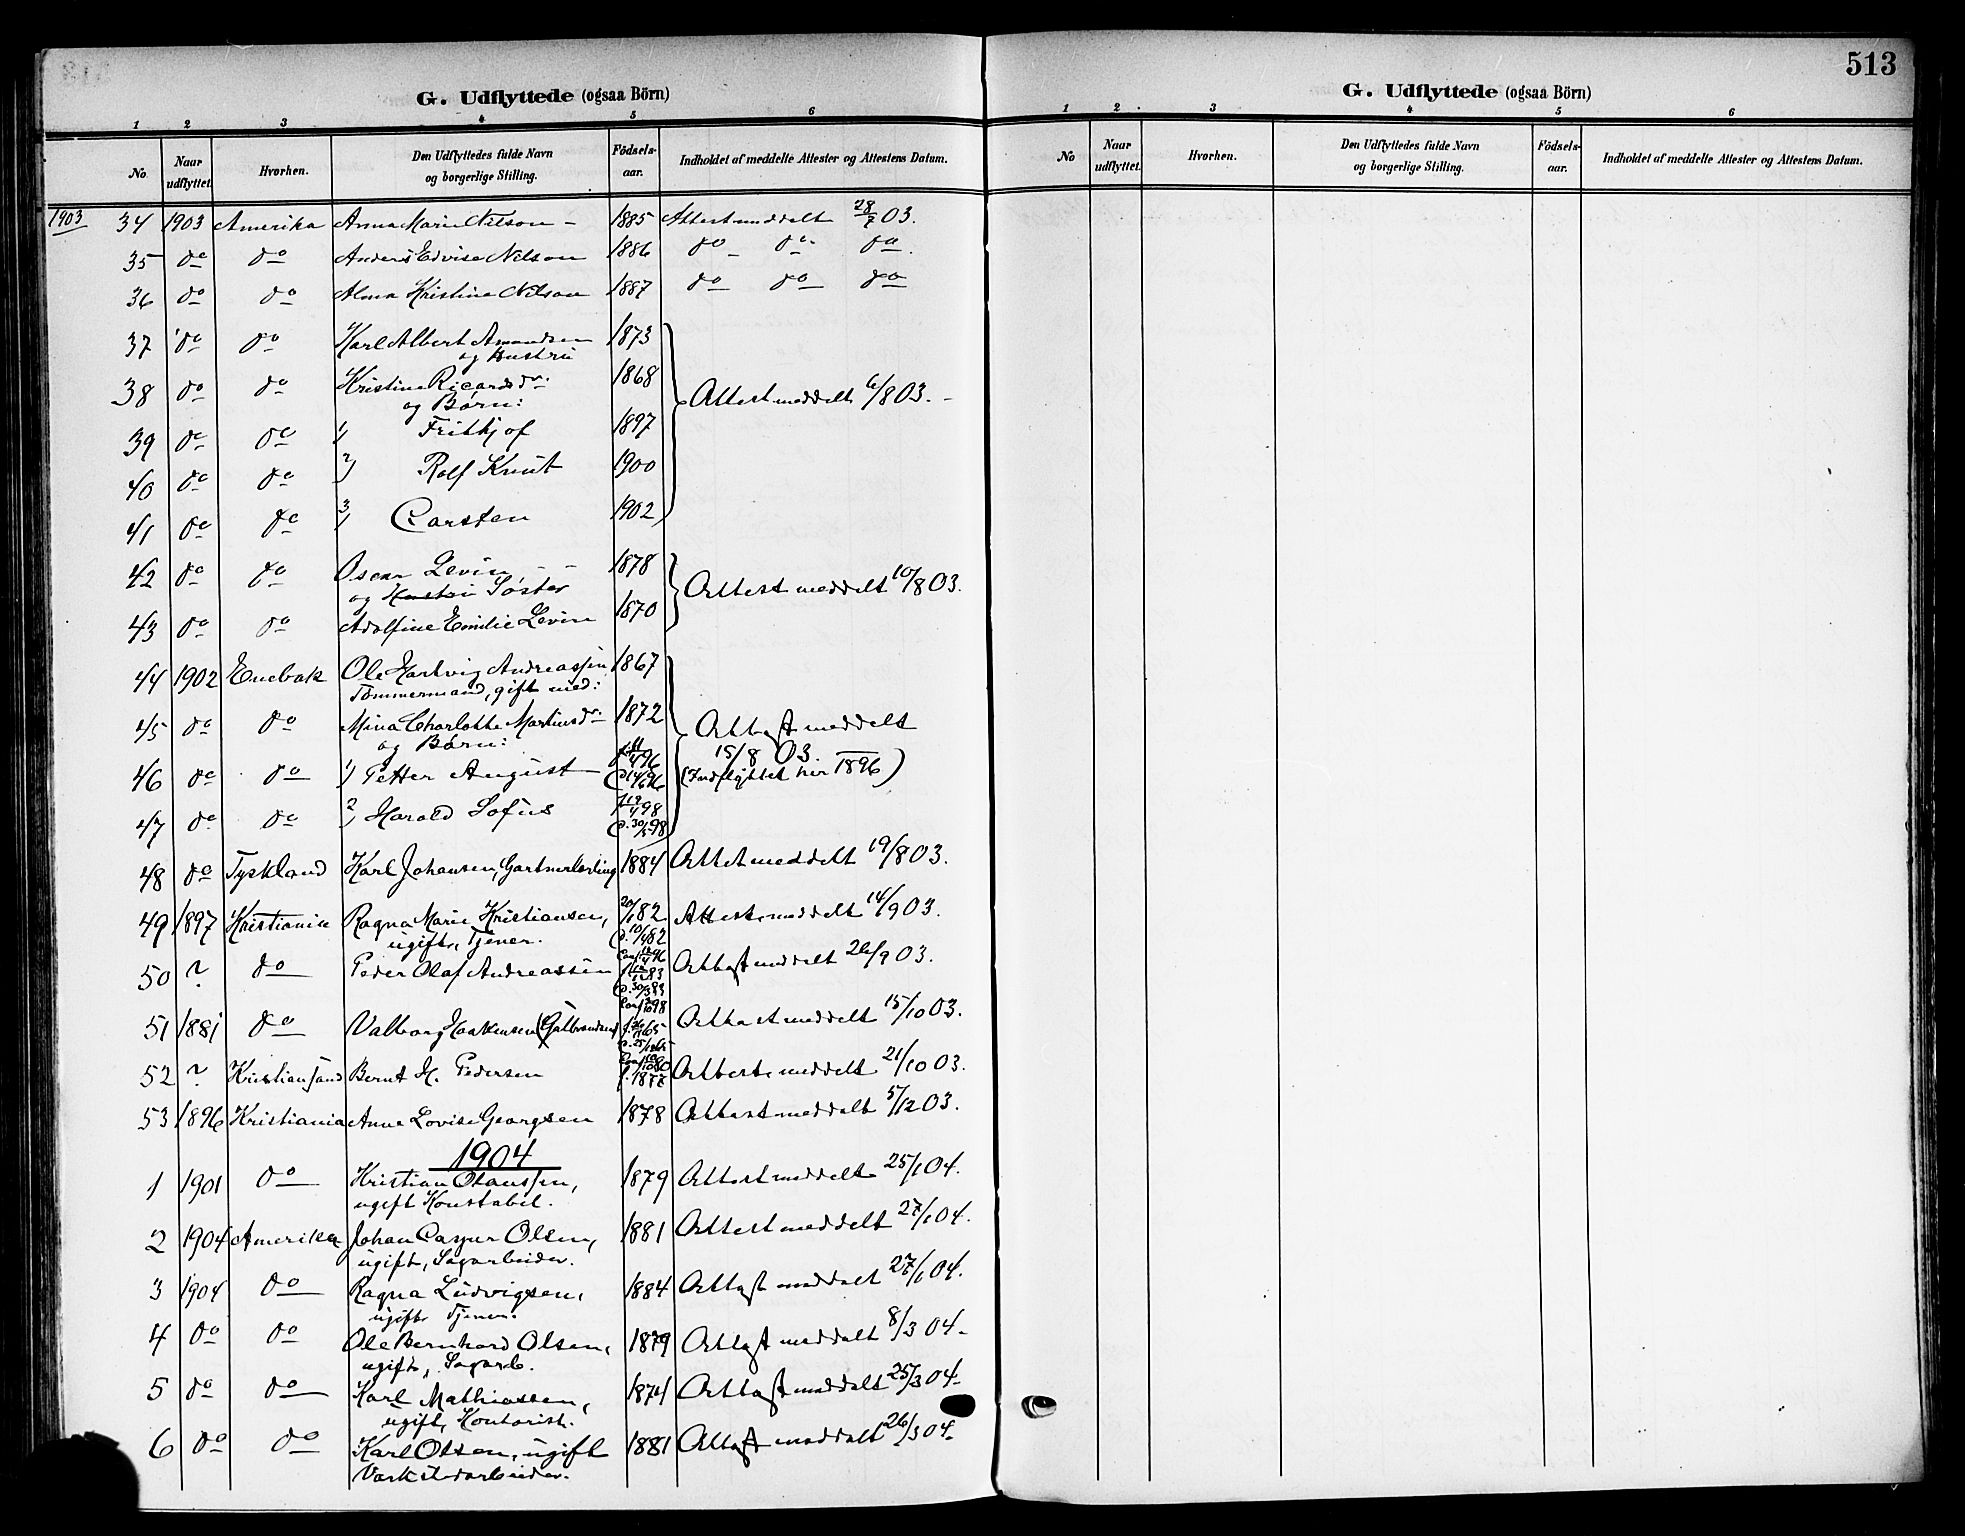 513
G. Udflyttede (ogsaa Börn)
1 2 3 4 5 6
No Naar udflyttet. Hvorhen. Den Udflyttedes fulde Navn og borgerlige Stilling. Födsels-aar. Indholdet af meddelte Attester og Attestens Datum.
1903 34 1903 Amerika Anna Marie Nilson - 1885 Attest meddelt 28/7 03.
35 do do Anders Edvise Nilson 1886 do - do do.
36 do do Alma Kristine Nilson 1887 do do do
37 do do Karl Albert Amundsen 1873
og Hustru
38 do do Kristine Ricardsdr. 1868 Attest meddelt 6/8 03. -
og Børn:
39 do do 1) Frithjof 1897
40 do do 2) Rolf Knut 1900
41 do do 3) Carsten 1902
42 do do Oscar Levin - - 1878
og Hustru Søster Attest meddelt 10/8 03.
43 do do Adolfine Emilie Levin 1870
44 1902 Enebak Ole Hartvig Andreassen 1867
Tømmermand, gift med:
45 do do Mina Charlotte Martinsdr. 1872 Attest meddelt
og Børn: 15/8 03.
46 do do 1) Petter August (Indflyttet her 1896)
47 do do 2) Harald Sofus f. 19/4 98
(d. 30/5 98
48 do Tyskland Karl Johansen, Gartnerlærling 1884 Attest meddelt 19/8 03.
49 1897 Kristiania Ragna Marie Kristiansen, 20/1 82 Attest meddelt 14/9 03.
ugift, Tjener. d. 10/4 82
50 ? do Peder Olaf Andreassen Attest meddelt 26/9 03.
51 1881 do Valborg Haakensen (Gulbrandsen) Attest meddelt 15/10 03.
52 ? Kristiansand Bernt H. Pedersen f. 1877 Attest meddelt 21/10 03.
53 1896 Kristiania Anna Lovise Georgsen 1878 Attest meddelt 5/12 03.
1904
1 1901 do Kristian Olaussen, 1879 Attest meddelt 25/1 04.
ugift Konstabel.
2 1904 Amerika Johan Casper Olsen, 1881 Attest meddelt 27/1 04.
ugift, Sagarbeider.
3 1904 do Ragna Ludvigsen, 1884 Attest meddelt 27/1 04.
ugift Tjener.
4 do do Ole Bernhard Olsen, 1879 Attest meddelt 8/3 04.
ugift, Sagarb.
5 do do Karl Mathiassen, 1874 Attest meddelt 25/3 04.
ugift, Kontorist.
6 do do Karl Olsen, ugift 1881 Attest meddelt 26/3 04.
Værkstedarbeider.
G. Udflyttede (ogsaa Börn)
1 2 3 4 5 6
No Naar udflyttet. Hvorhen. Den Udflyttedes fulde Navn og borgerlige Stilling. Födsels-aar. Indholdet af meddelte Attester og Attestens Datum.